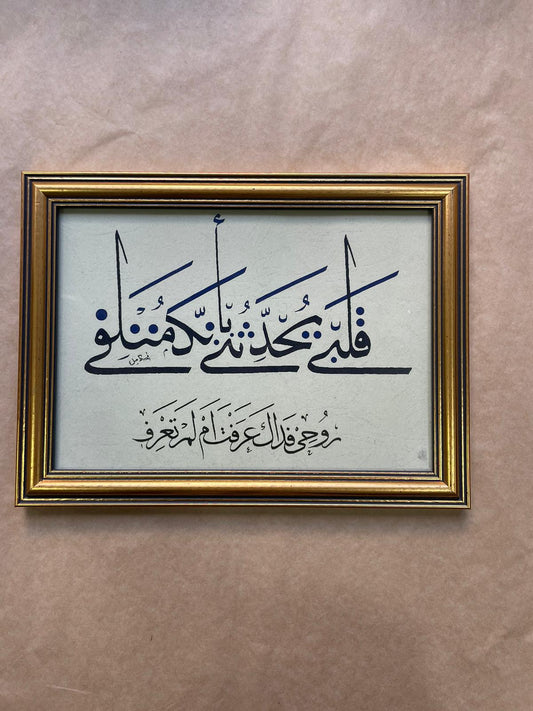 قلبي يُحَدِّثُني بأنّكَ مُتْلِفي
رُوحي فداك عَرَفْتَ أمْ لَمْ تَعْرِفِ